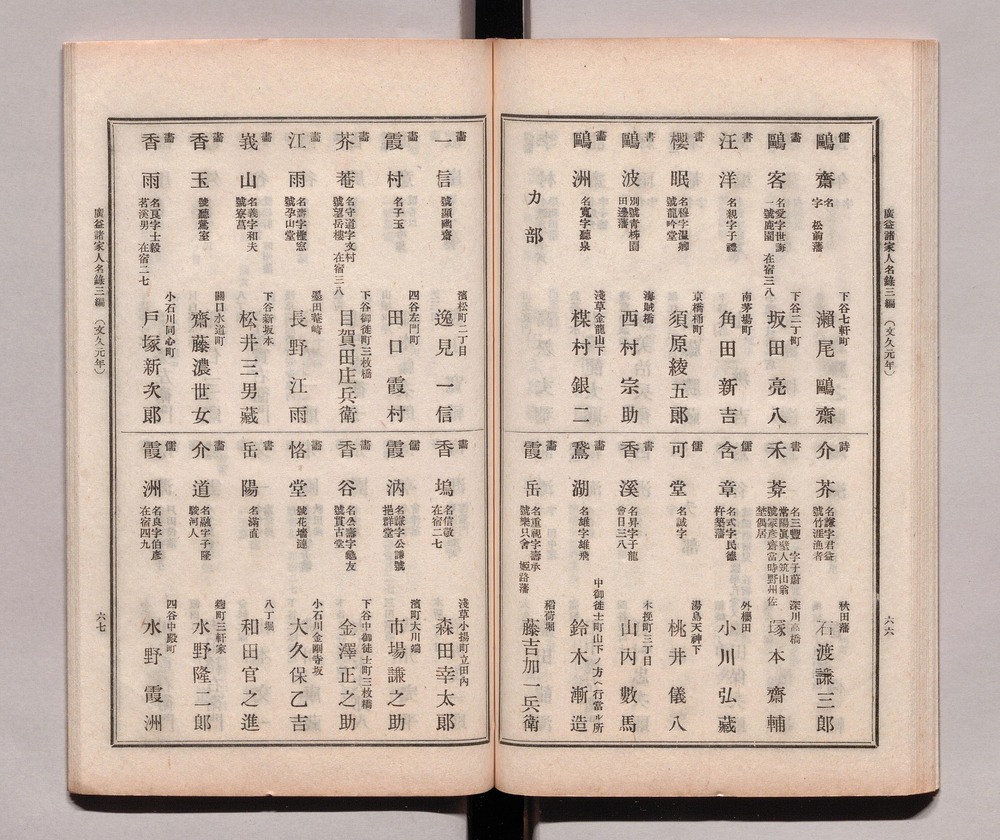 廣益諸家人名錄三編 （文久元年）
儒 鷗齋 名 字 松前藩 下谷七軒町 瀨尾鷗齋
畵 鷗客 名愛字世壽 一號鹿園 在宿三八 下谷二丁町 坂田亮八
書 汪洋 名親字子禮 南茅場町 角田新吉
書 櫻眠 號龍吟堂 京橋桶町 須原綾五郎
書 鷗波 別號靑梯園 田邊藩 海賊橋 西村宗助
畵 鷗洲 名寬字聽泉 淺草金龍山下 楳村銀二
カ部
詩 介芥 名謙字君益 號竹涯漁者 秋田藩 石渡謙三郎
書 禾葬 名三豐 字子蔚 常陽眞壁人筑山翁 號冢彥齋當時野州佐 埜偶居 深川高橋 塚本齋輔
儒 含章 名式字民德 杵築藩 外櫻田 小川弘藏
儒 可堂 名誠字 湯島天神下 桃井儀八
書 香溪 名昇字子龍 會日三八 木挽町三丁目 山內數馬
畵 鵞湖 名雄字雄飛 中御徒士町山下ノ方ヘ行當ル所 鈴木漸造
畵 霞岳 名重視字壽承 號樂只會 姬路藩 稻荷堀 藤吉加一兵衛
六六
畵 一信 號顯幽齋 濱松町二丁目 逸見一信
畵 霞村 名子玉 四谷左門町 田口霞村
畵 芥菴 名守道字文村 號望岳樓 在宿三八 下谷御徒町三枚橋 目賀田庄兵衛
畵 江雨 名齋字櫳窓 號孕山堂 墨田菴崎 長野江雨
畵 峩山 名義字和夫 號寮菖 下谷新坂本 松井三男藏
畵 香玉 號聽鶯室 關口水道町 齋藤濃世女
畵 香雨 名良字士毅 茗溪男 在宿二七 小石川同心町 戶塚新次郎
畵 香塢 名信敬 在宿二七 淺草小揚町立田內 森田幸太郎
儒 霞汭 名謙字公謙號 挹群堂 濱町大川端 市場謙之助
畵 香谷 名公壽字龜友 號貫古堂 下谷中御徒士町三枚橋 金澤正之助
畵 恪堂 號花墻漣 小石川金剛寺坂 大久保乙吉
書 岳陽 名滿直 八丁堀 和田官之進
畵 介道 名融字子隆 駿河人 麹町三軒家 水野隆二郎
儒 霞洲 名良字伯彥 在宿四九 四谷中殿町 水野霞洲
廣益諸家人名錄三編 （文久元年）
六七